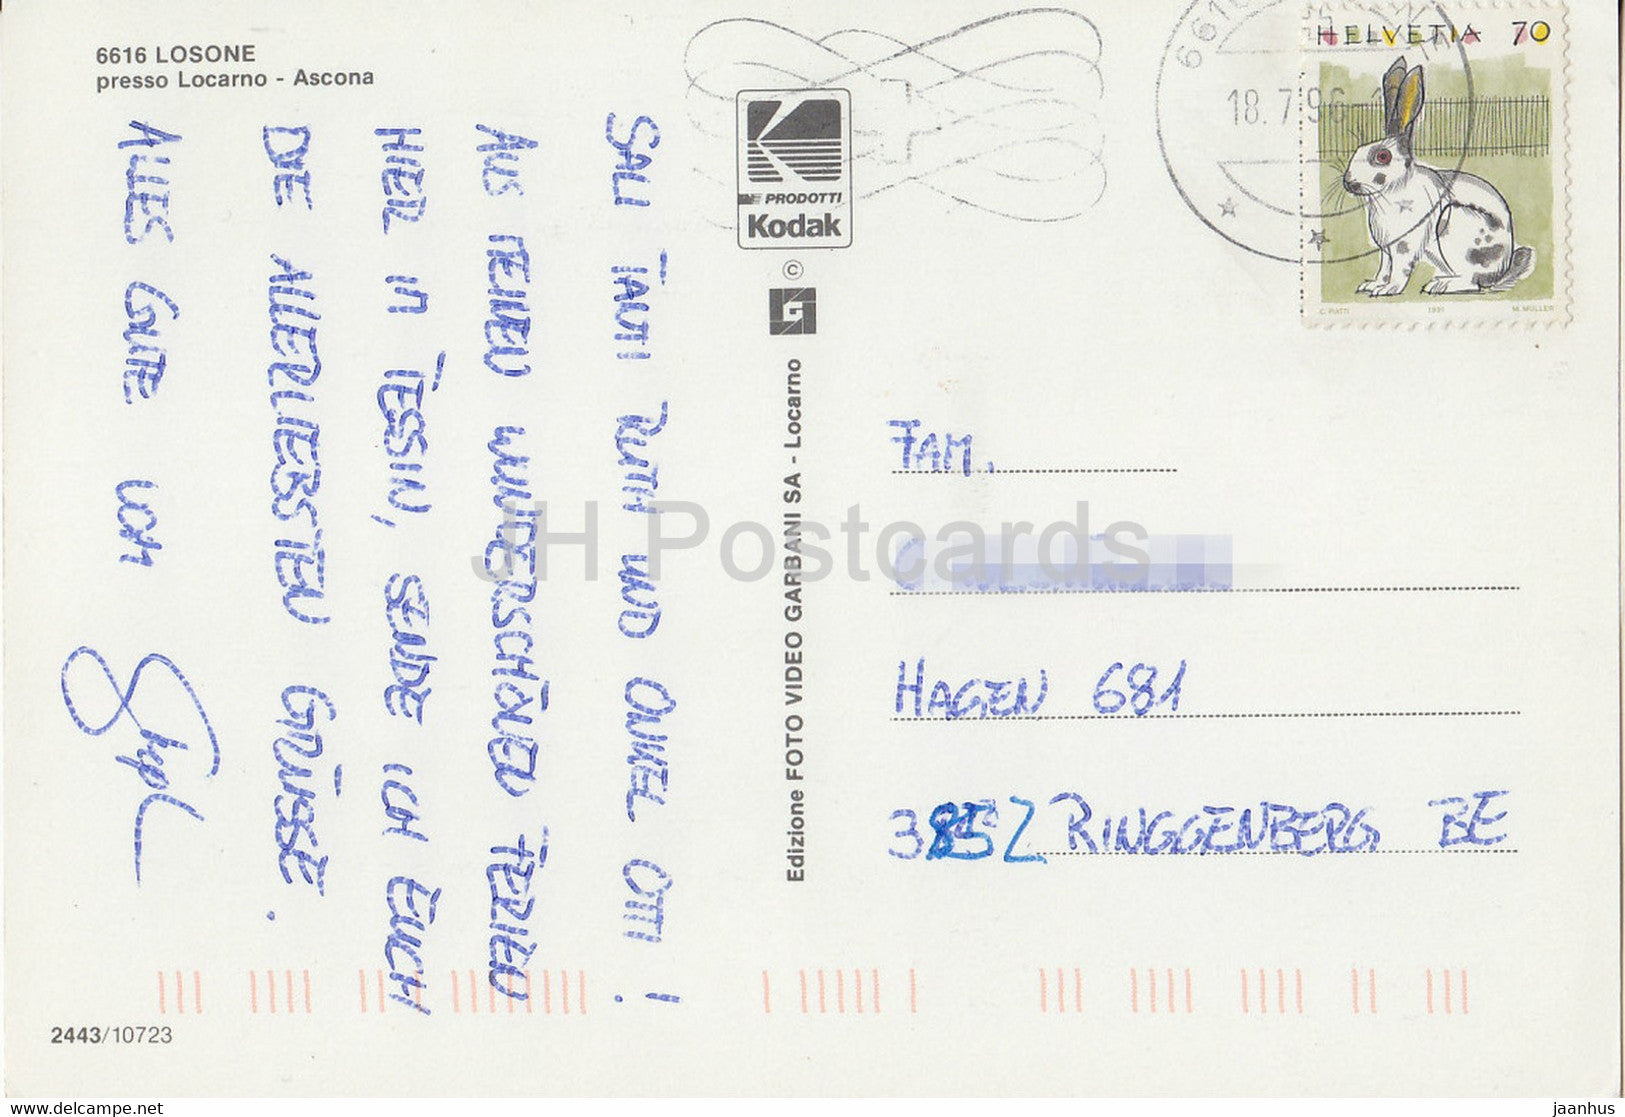 6616 LOSONE
presso Locarno - Ascona
SALI TANTI RUTH UND ONKEL OTTI !
AUS MEINEN WUNDERSCHÖNEN FERIEN
HIER IN TESSIN, SENDE ICH EUCH
DIE ALLERLIEBSTEN GRÜSSE.
ALLES GUTE VOM
2443/10723
K
PRODOTTI
Kodak
©
Edizione FOTO VIDEO GARBANI SA - Locarno
18.7.96
HELVETIA 70
C. PIATTI 1991 M. MÜLLER
FAM.
HAGEN 681
3852 RINGGENBERG BE
JH Postcards
www.delcampe.net
jaanhus